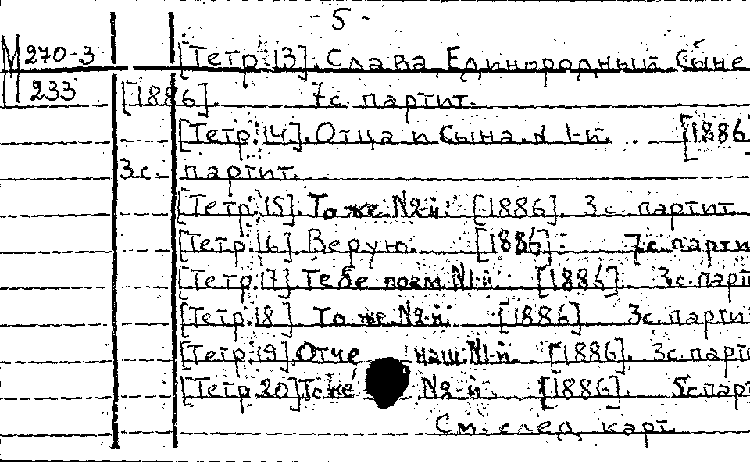 - 5 -
М 270-3 [Тетр. 13]. Слава, Единородный Сыне
233 [1886]. 7с. партит.
[Тетр. 14]. Отца и Сына. N 1-й. [1886
3с. партит.
[Тетр. 15]. То же №2-й. [1886]. 3с. партит
[Тетр. 16]. Верую. [1886]. 7с. парти
[Тетр. 17] Тебе поем №1-й [1886]. 3с. парт
[Тетр. 18]. То же №2-й. [1886] 3с. парти
[Тетр. 19]. Отче наш №1-й. [1886]. 3с. парт
[Тетр. 20] То же №2-й. [1886]. 5с парт
См. след. карт.